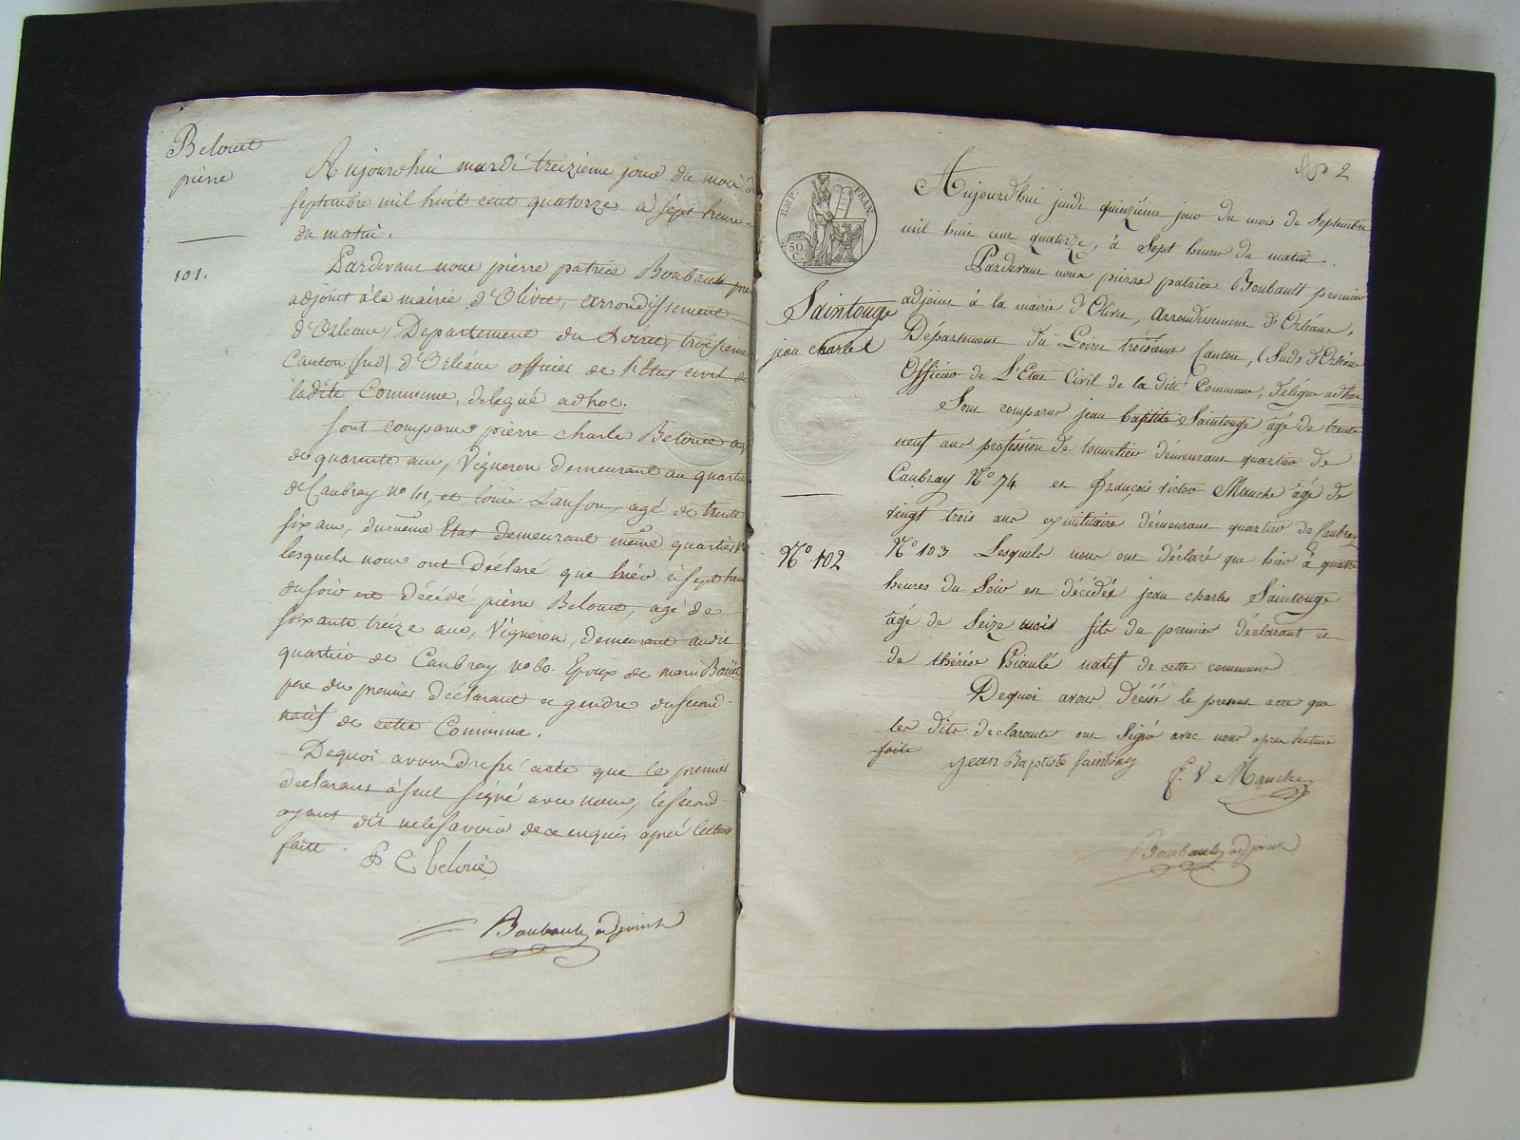 Belouet
pierre
101.
Aujourdhui mardi treizieme jour du mois de
septembre mil huit cent quatorze a sept heure
du matin.
Pardevant nous pierre patrice Boubault pre
adjoint à la mairie d'Olivet, arrondissement
d'Orleans, Departement du Loiret, troisieme
Canton (sud) d'Orléans officier de l'Etat civil de
ladite Commune, délegué adhoc.
Sont comparus pierre charle Belouet agé
de quarante ans, Vigneron demeurant au quartier
de Caubray no 61, et louis Lanson, agé de trente
six ans, du même Etat demeurant même quartier
lesquels nous ont déclaré que hier à sept heure
du soir est décédé pierre Belouet, agé de
soixante treize ans, Vigneron, demeurant audit
quartier de Caubray no 60 Epoux de marie
pere du premier déclarant et gendre du second
natif de cette Commune.
Dequoi avons dressé acte que le premier
déclarant à seul signé avec nous, le second
ayant dit ne le savoir de ce enquis après lecture
faitte.
P C belouet
Boubault adjoint
2
REP. FRAN.
50
C.
Saintonge
jean charles
N° 102
Aujourd'hui jeudi quinzième jour du mois de Septembre
mil huit cent quatorze, à Sept heures du matin.
Pardevant nous pierre patrice Boubault premier
adjoint à la mairie d'Olivet, Arrondissement d'Orléans,
Département du Loiret troisième Canton, (Sud) d'Orléans
Officier de L'Etat Civil de la dite Commune, délégué adhoc
Sont comparus jean baptiste Saintonge âgé de trente
neuf ans profession de tonnelier demeurant quartier de
Caubray N° 74 et françois victor Manche âgé de
vingt trois ans exmilitaire demeurant quartier de Caubray
N° 103 Lesquels nous ont déclaré que hier à quatre
heures du Soir est décédé jean charles Saintonge
âgé de Seize mois fils du premier déclarant et
de thérése Piaulé natif de cette commune
Dequoi avons dréssé le present acte que
les dits declarants ont Signé avec nous apres lecture
faite
jean Baptiste Saintonge
f. V Manche
Boubault adjoint